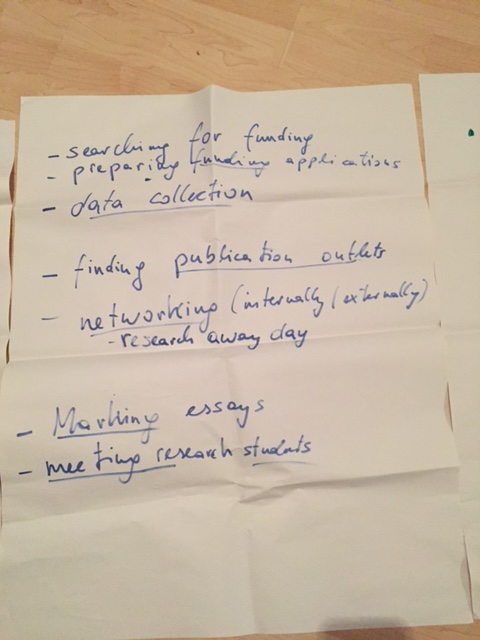 - searching for funding
- preparing funding applications
- data collection
- finding publication outlets
- networking (internally / externally)
- research away day
- Marking essays
- meeting research students